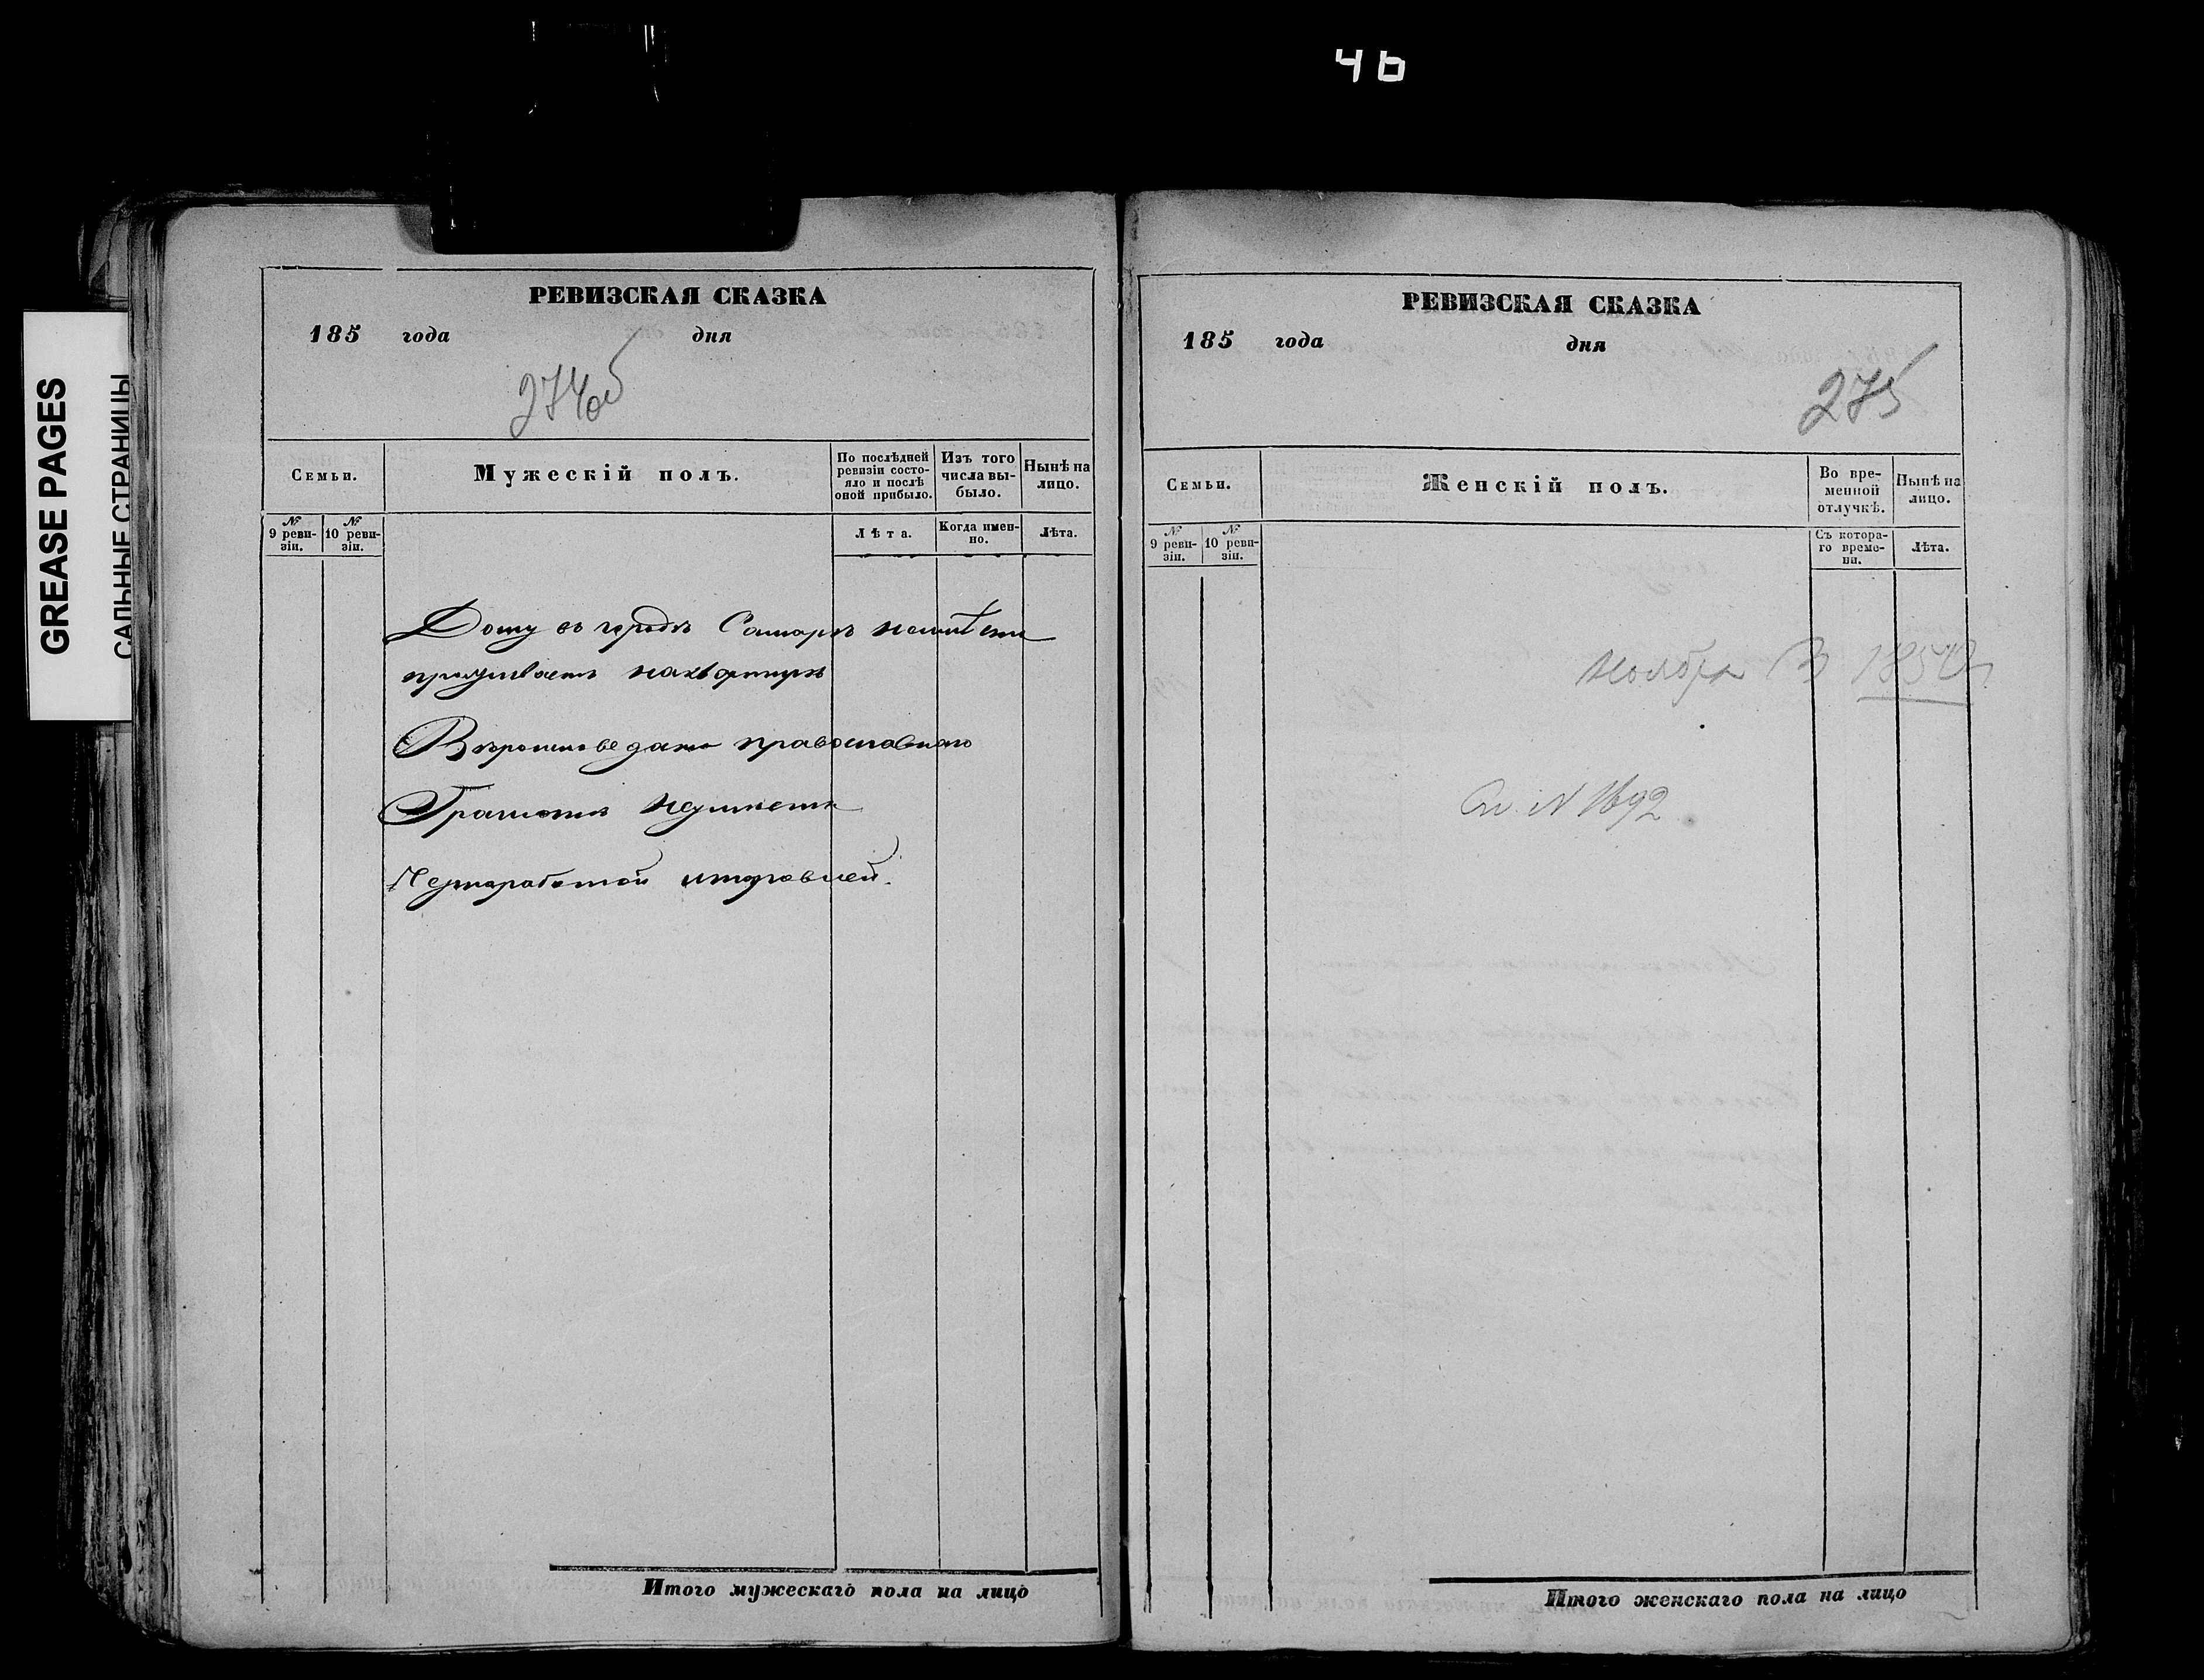 46
GREASE PAGES
САЛЬНЫЕ СТРАНИЦЫ
РЕВИЗСКАЯ СКАЗКА
185 года дня
274об
Семьи.
Мужескій полъ.
По послѣдней ревизіи состояло и послѣ оной прибыло.
Изъ того числа выбыло.
Нынѣ на лицо.
№ 9 ревизіи.
№ 10 ревизіи.
Лѣта.
Когда именно.
Лѣта.
Дому въ городѣ Самарѣ неимѣетъ
проживаетъ наквартирѣ
Вѣроисповеданія православнаго
Грамотѣ неумѣетъ
Чернаработой иторговлей.
Итого мужескаго пола на лицо
РЕВИЗСКАЯ СКАЗКА
185 года дня
275
Семьи.
Женскій полъ.
Во временной отлучкѣ.
Нынѣ на лицо.
№ 9 ревизіи.
№ 10 ревизіи.
Съ котораго времени.
Лѣта.
Ноября
N 1692
Итого женскаго пола на лицо